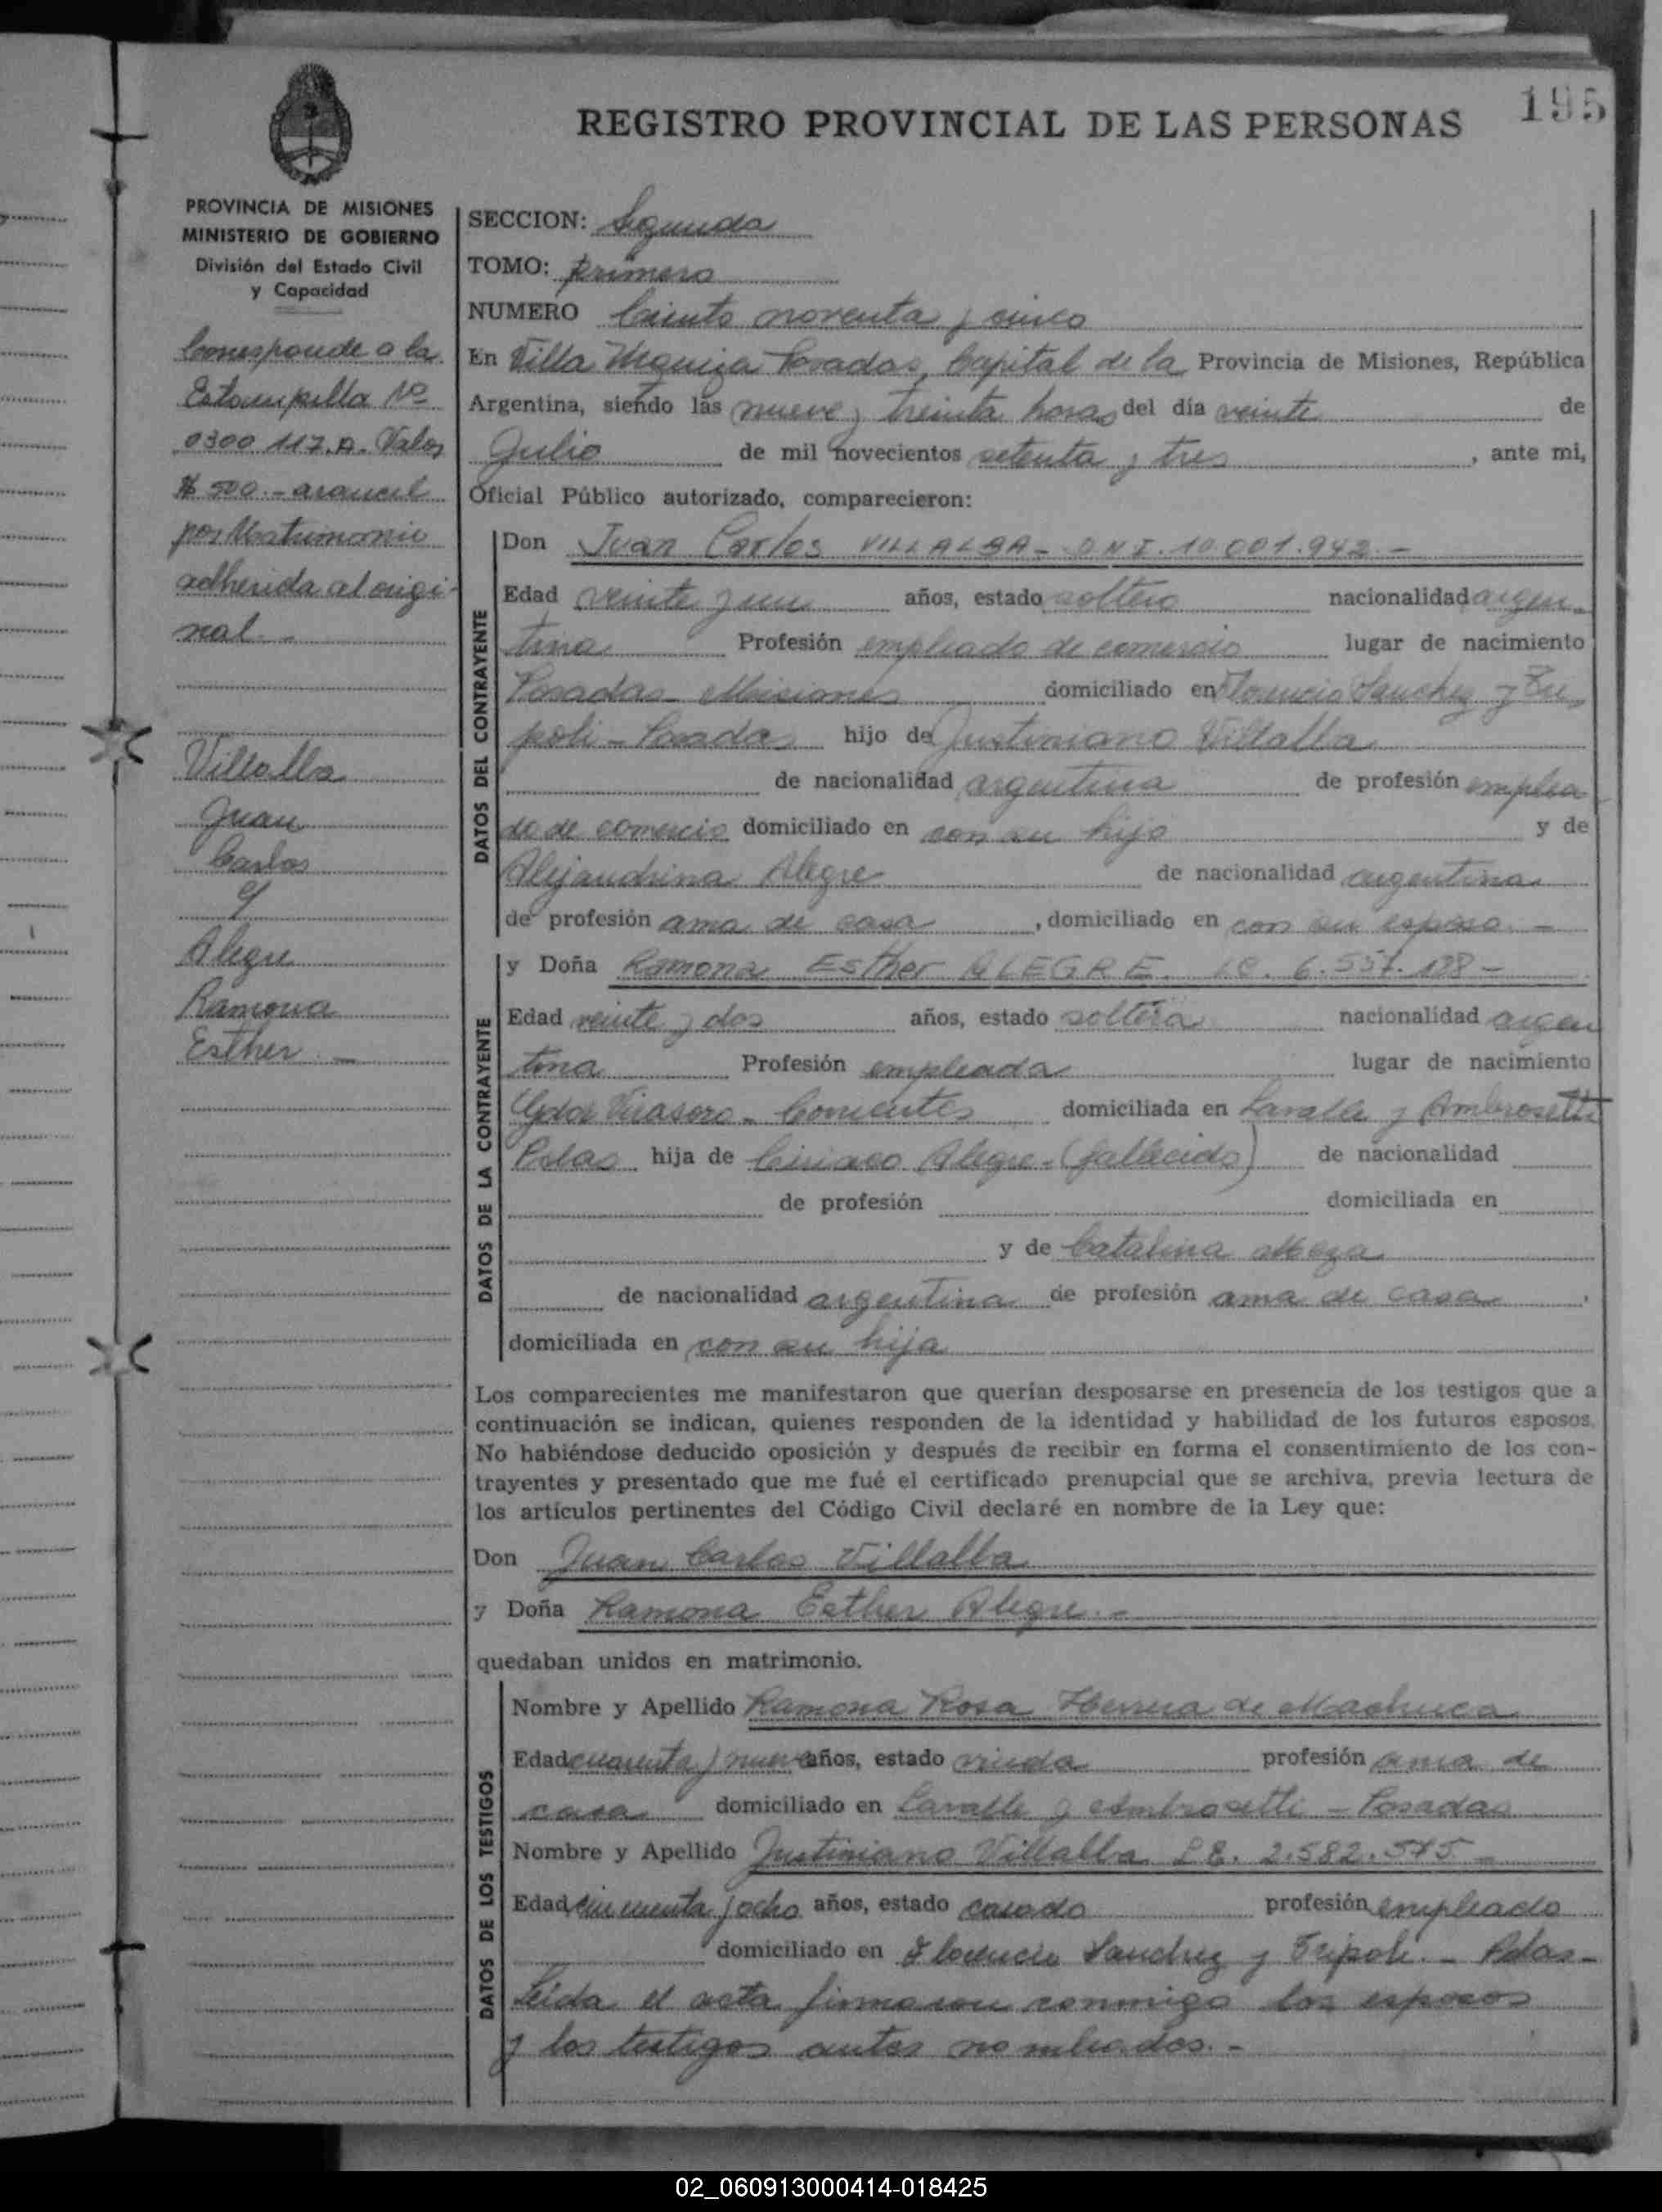 195
REGISTRO PROVINCIAL DE LAS PERSONAS
PROVINCIA DE MISIONES
MINISTERIO DE GOBIERNO
División del Estado Civil
y Capacidad
Corresponde a la
Estampilla Nº
0300 117.A. Valor
$ 500.- arancel
por Matrimonio
adherida al origi-
nal.-
Villalba
Juan
Carlos
c/
Alegre
Ramona
Esther.-
SECCION: Segunda
TOMO: Primero
NUMERO Ciento noventa y cinco
En Villa Urquiza Posadas, Capital de la Provincia de Misiones, República
Argentina, siendo las nueve y treinta horas del día veinte de
Julio de mil novecientos setenta y tres, ante mi,
Oficial Público autorizado, comparecieron:
DATOS DEL CONTRAYENTE
Don Juan Carlos VILLALBA - DNI. 10.001.942.-
Edad veinte y un años, estado soltero nacionalidad argen-
tina Profesión empleado de comercio lugar de nacimiento
Posadas - Misiones domiciliado en Florencio Sanchez y Tri
poli - Posadas hijo de Justiniano Villalba
de nacionalidad argentina de profesión emplea
do de comercio domiciliado en con su hijo y de
Alejandrina Alegre de nacionalidad argentina
de profesión ama de casa, domiciliado en con su esposo.-
DATOS DE LA CONTRAYENTE
y Doña Ramona Esther ALEGRE. L.C. 6.557.188-
Edad veinte y dos años, estado soltera nacionalidad argen
tina Profesión empleada lugar de nacimiento
Gdor Virasoro - Corrientes domiciliada en Lavalle y Ambrosetti
Pdas hija de Ciriaco Alegre - (fallecido) de nacionalidad
de profesión domiciliada en
y de Catalina Meza
de nacionalidad argentina de profesión ama de casa,
domiciliada en con su hija
Los comparecientes me manifestaron que querían desposarse en presencia de los testigos que a
continuación se indican, quienes responden de la identidad y habilidad de los futuros esposos.
No habiéndose deducido oposición y después de recibir en forma el consentimiento de los con-
trayentes y presentado que me fué el certificado prenupcial que se archiva, previa lectura de
los artículos pertinentes del Código Civil declaré en nombre de la Ley que:
Don Juan Carlos Villalba
y Doña Ramona Esther Alegre.-
quedaban unidos en matrimonio.
DATOS DE LOS TESTIGOS
Nombre y Apellido Ramona Rosa Herrera de Machuca
Edad cuarenta y nueve años, estado viuda profesión ama de
casa domiciliado en Lavalle y Ambrosetti - Posadas
Nombre y Apellido Justiniano Villalba L.E. 2.582.575-
Edad cincuenta y ocho años, estado casado profesión empleado
domiciliado en Florencio Sanchez y Tripoli.- Pdas-
Leida el acta firmaron conmigo los esposos
y los testigos antes nombrados.-
02_060913000414-018425